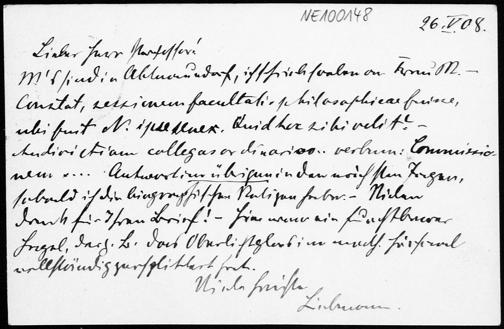 NE100148
26.V.08.
Lieber Herr Professor!
M's sind in Ahlmannsdorf, ich schrieb soeben an Frau M. –
Constat, sessionem facultatis philosophicae fuisse,
ubi fuit N. ipse senex. Quid hoc sibi velit? –
Audivi etiam collegas ordinarios verbum: Commissio-
nem .... Antwort im übrigen in den nächsten Tagen,
sobald ich die biographischen Notizen habe. – Vielen
Dank für Ihren Brief! – Hier war ein furchtbarer
Hagel, der z. B. das Oberlichtglas im
vollständig zersplittert hat.
Viele Grüße
Liebmann.